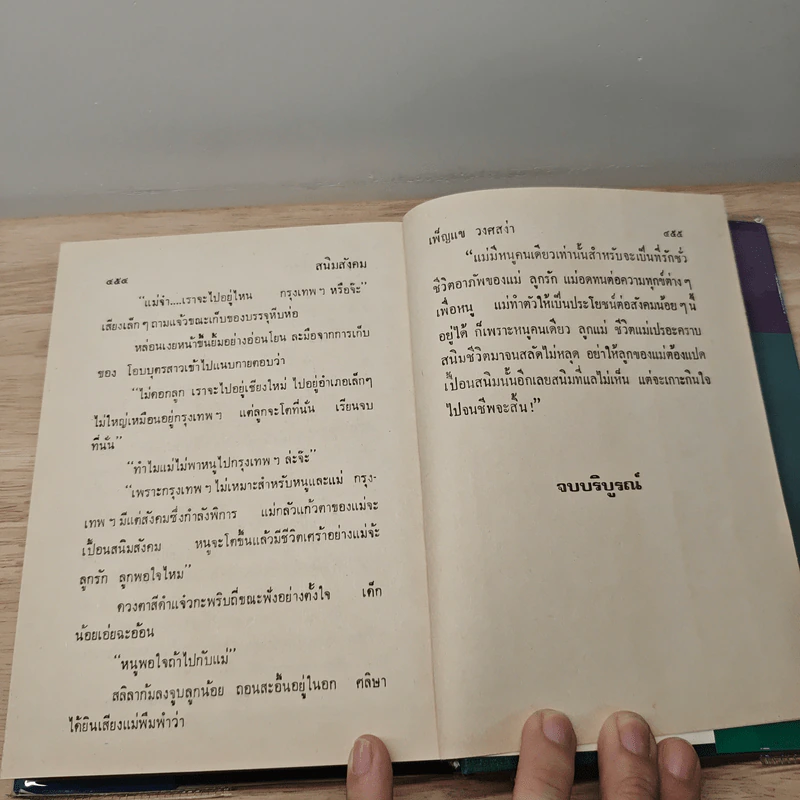 ๔๕๔ สนิมสังคม
“แม่จ๋า....เราจะไปอยู่ไหน กรุงเทพ ฯ หรือจ๊ะ”
เสียงเล็ก ๆ ถามแจ้วขณะเก็บของบรรจุหีบห่อ
หล่อนเงยหน้าขึ้นยิ้มอย่างอ่อนโยน ละมือจากการเก็บ
ของ โอบบุตรสาวเข้าไปแนบกายตอบว่า
“ไม่ดอกลูก เราจะไปอยู่เชียงใหม่ ไปอยู่อำเภอเล็กๆ
ไม่ใหญ่เหมือนอยู่กรุงเทพ ฯ แต่ลูกจะโตที่นั่น เรียนจบ
ที่นั่น”
“ทำไมแม่ไม่พาหนูไปกรุงเทพ ฯ ล่ะจ๊ะ”
“เพราะกรุงเทพ ฯ ไม่เหมาะสำหรับหนูและแม่ กรุง-
เทพ ฯ มีแต่สังคมซึ่งกำลังพิการ แม่กลัวแก้วตาของแม่จะ
เปื้อนสนิมสังคม หนูจะโตขึ้นแล้วมีชีวิตเศร้าอย่างแม่จ้ะ
ลูกรัก ลูกพอใจไหม”
ดวงตาสีดำแจ๋วกะพริบถี่ขณะฟังอย่างตั้งใจ เด็ก
น้อยเอ่ยฉะอ้อน
“หนูพอใจถ้าไปกับแม่”
สลิลาก้มลงจูบลูกน้อย ถอนสะอื้นอยู่ในอก ศลิษา
ได้ยินเสียงแม่พึมพำว่า
เพ็ญแข วงศสง่า ๔๕๕
“แม่มีหนูคนเดียวเท่านั้นสำหรับจะเป็นที่รักชั่ว
ชีวิตอาภัพของแม่ ลูกรัก แม่อดทนต่อความทุกข์ต่าง ๆ
เพื่อหนู แม่ทำตัวให้เป็นประโยชน์ต่อสังคมน้อย ๆ นี้
อยู่ได้ ก็เพราะหนูคนเดียว ลูกแม่ ชีวิตแม่เปรอะคราบ
สนิมชีวิตมาจนสลัดไม่หลุด อย่าให้ลูกของแม่ต้องแปด
เปื้อนสนิมนั้นอีกเลยสนิมที่แลไม่เห็น แต่จะเกาะกินใจ
ไปจนชีพจะสิ้น!”
จบบริบูรณ์